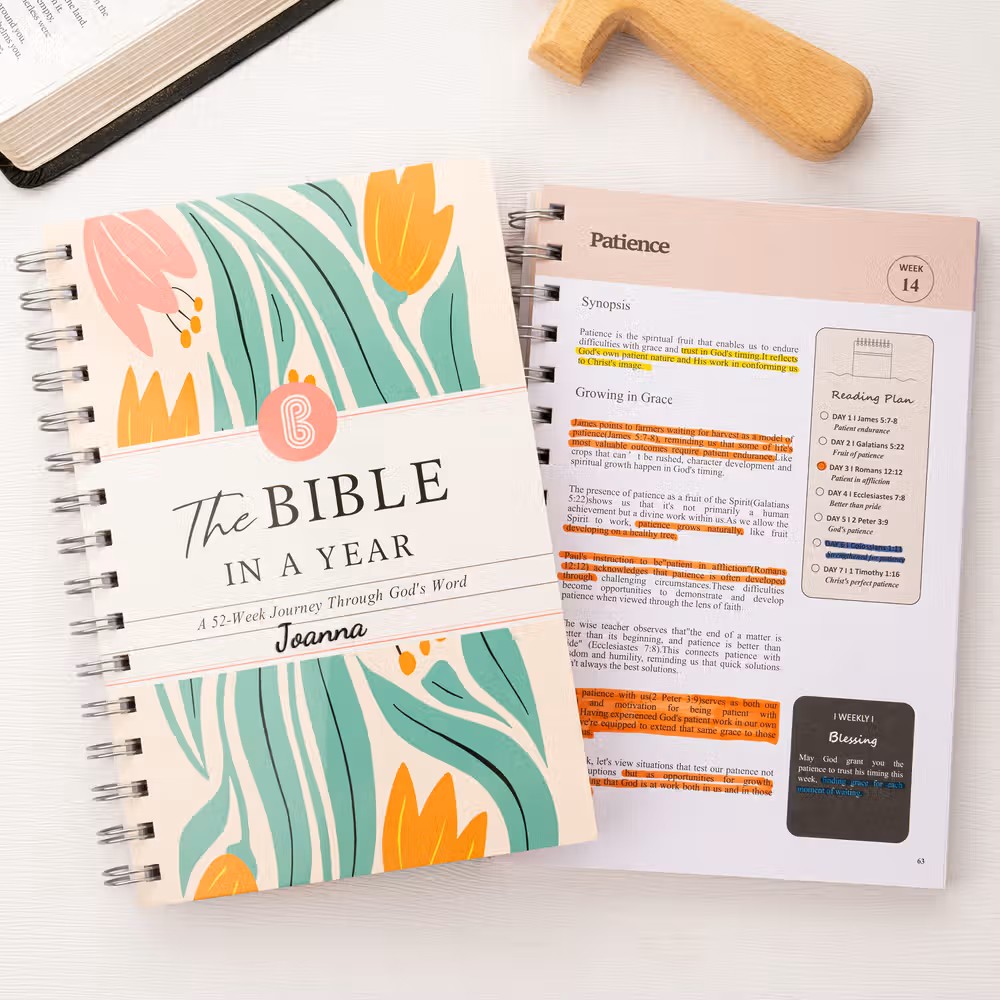 the land,
empty.
erless were
around you.
helms you.
B
The BIBLE
IN A YEAR
A 52-Week Journey Through God's Word
Joanna
Patience
WEEK
14
Synopsis
Patience is the spiritual fruit that enables us to endure
difficulties with grace and trust in God's timing.It reflects
God's own patient nature and His work in conforming us
to Christ's image.
Growing in Grace
James points to farmers waiting for harvest as a model of
patience(James 5:7-8), reminding us that some of life's
most valuable outcomes require patient endurance.Like
crops that can't be rushed, character development and
spiritual growth happen in God's timing.
The presence of patience as a fruit of the Spirit(Galatians
5:22)shows us that it's not primarily a human
achievement but a divine work within us.As we allow the
Spirit to work, patience grows naturally, like fruit
developing on a healthy tree.
Paul's instruction to be"patient in affliction"(Romans
12:12) acknowledges that patience is often developed
through challenging circumstances.These difficulties
become opportunities to demonstrate and develop
patience when viewed through the lens of faith.
The wise teacher observes that"the end of a matter is
etter than its beginning, and patience is better than
ide" (Ecclesiastes 7:8).This connects patience with
sdom and humility, reminding us that quick solutions
n't always the best solutions.
patience with us(2 Peter 3:9)serves as both our
and motivation for being patient with
Having experienced God's patient work in our own
we're equipped to extend that same grace to those
us.
k, let's view situations that test our patience not
uptions but as opportunities for growth,
ing that God is at work both in us and in those
Reading Plan
DAY 1 I James 5:7-8
Patient endurance
DAY 2 I Galatians 5:22
Fruit of patience
DAY 3 I Romans 12:12
Patient in affliction
DAY 4 I Ecclesiastes 7:8
Better than pride
DAY 5 I 2 Peter 3:9
God's patience
DAY 6 I Colossians 1:11
Strengthened for patience
DAY 7 I 1 Timothy 1:16
Christ's perfect patience
I WEEKLY I
Blessing
May God grant you the
patience to trust his timing this
week, finding grace for each
moment of waiting.
63